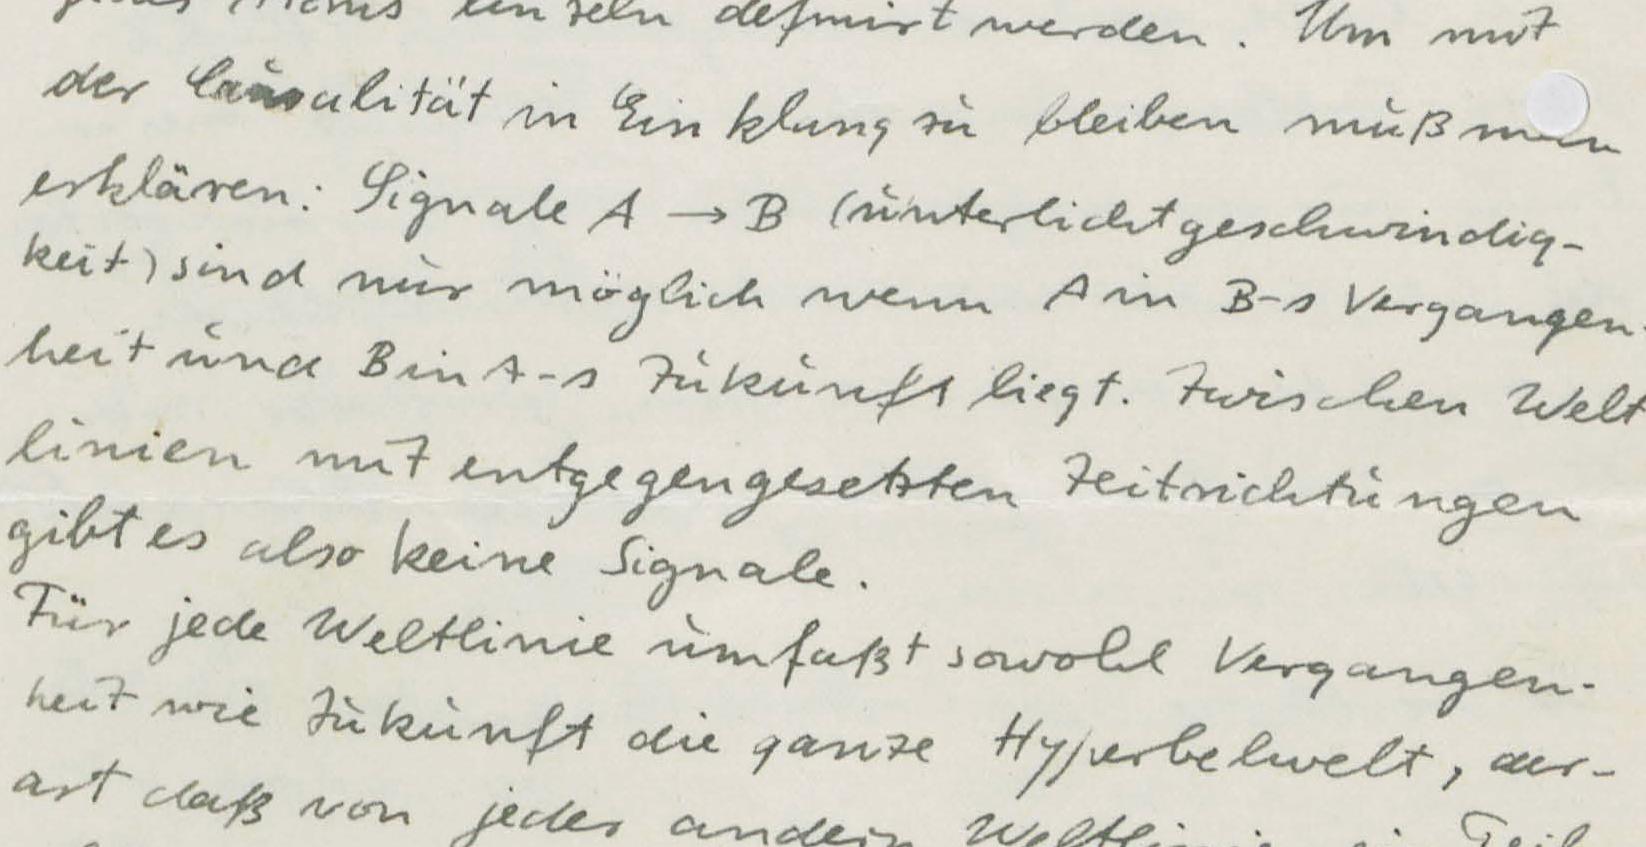 jedes Atoms einzeln definirt werden. Um mit
der Causalität in Einklang zu bleiben muß man
erklären: Signale A → B (unterlichtgeschwindig-
keit) sind nur möglich wenn A in B-s Vergangen-
heit und B in A-s Zukunft liegt. Zwischen Welt
linien mit entgegengesetzten Zeitrichtungen
gibt es also keine Signale.
Für jede Weltlinie umfaßt sowohl Vergangen-
heit wie Zukunft die ganze Hyperbelwelt, der-
art daß von jeder andern Weltlinie ein Teil